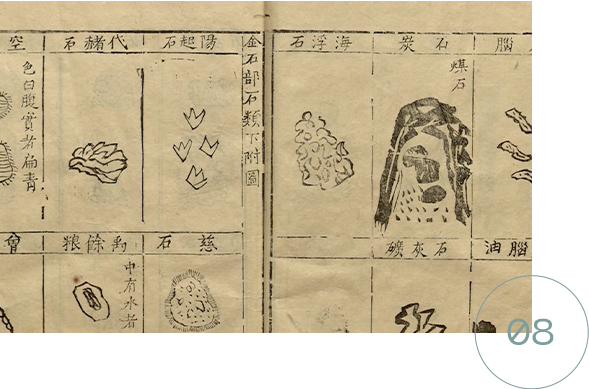 腦
石炭
煤石
海浮石
腦油
石灰礦
金石部石類下附圖
陽起石
代赭石
空
色白腹實者扁青
慈石
禹餘粮
中有水者
會
08